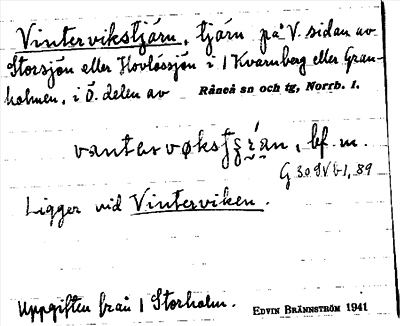 Vintervikstjärn, tjärn på V. sidan av
Storsjön eller Hovlössjön i 1 Kvarnberg eller Gran-
holmen, i Ö. delen av Råneå sn och tg, Norrb. l.
bf. m.
Ligger vid Vinterviken.
Uppgiften från 1 Storholm. EDVIN BRÄNNSTRÖM 1941